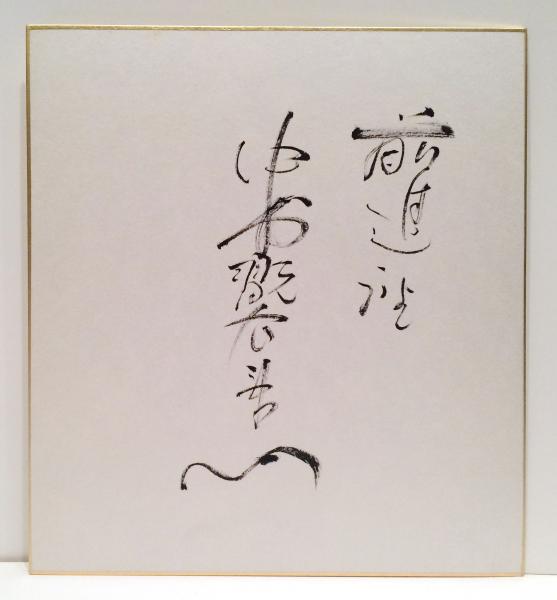 前進座
中村翫右衛門